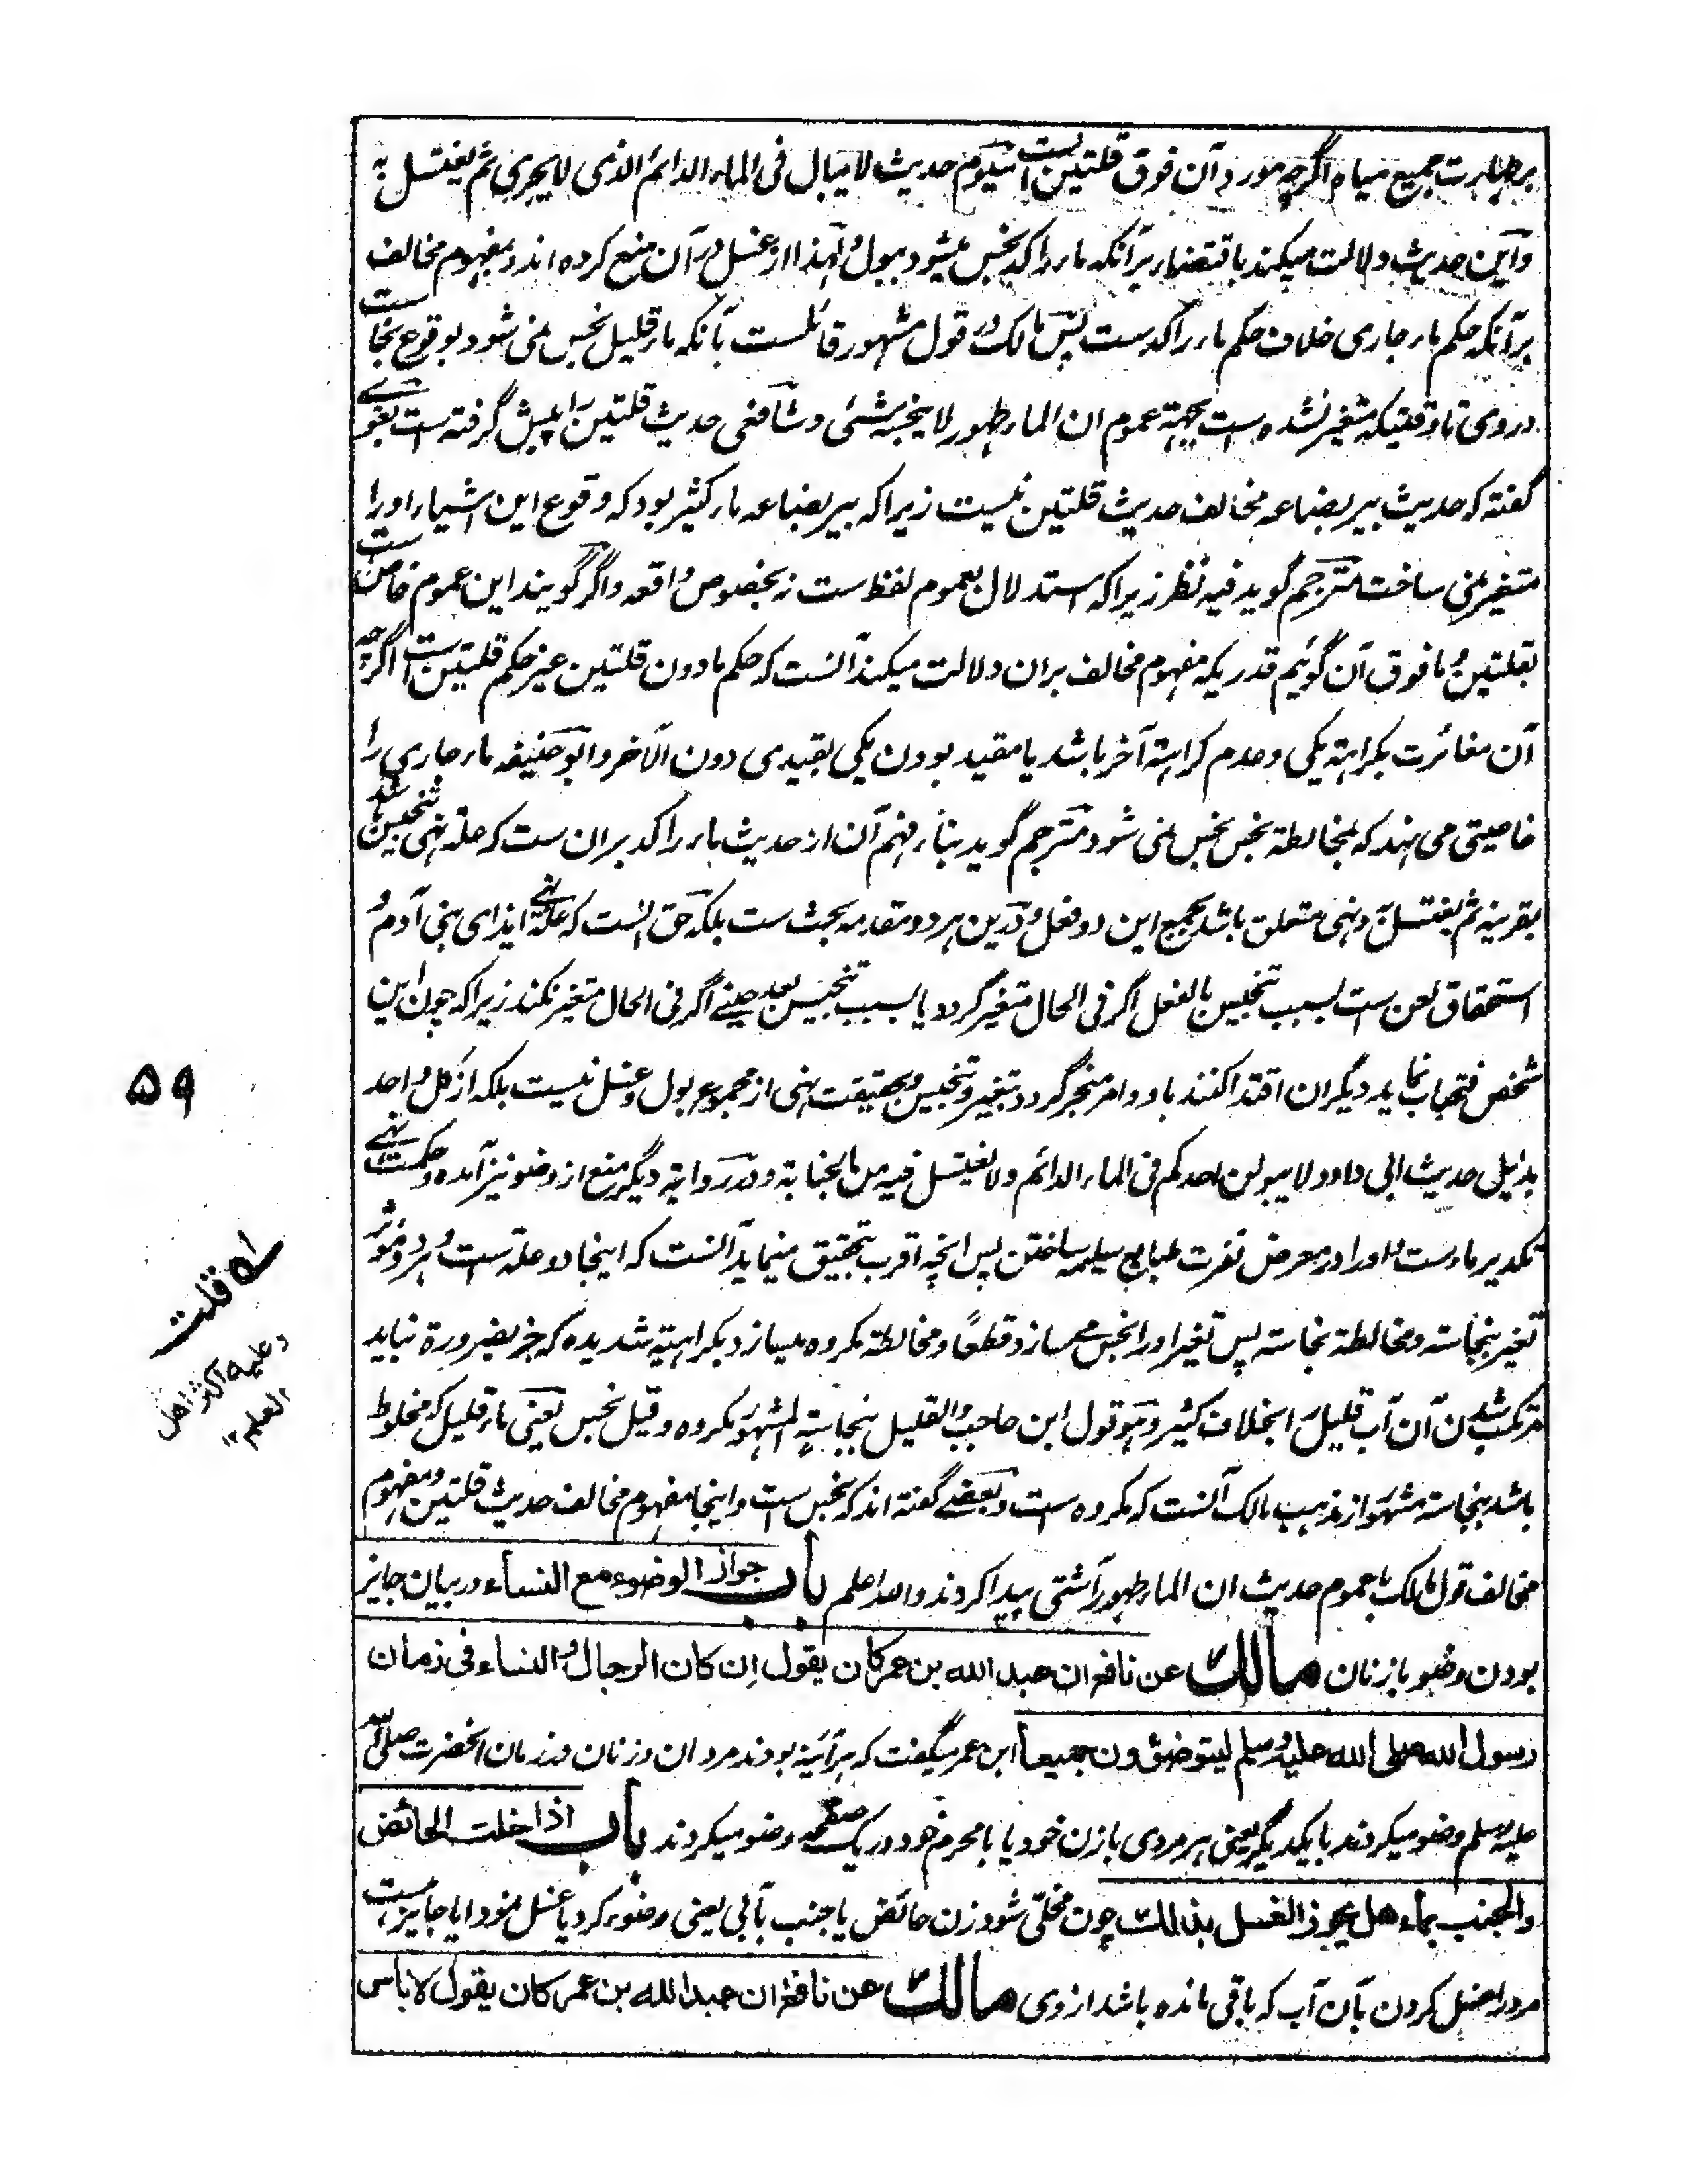 بر طهارت جمیع میاه اگرچه مورد آن فوق قلتین است سیوم حدیث لا یبال فی الماء الدائم الذی لا یجری ثم یغتسل به
و این حدیث دلالت میکند باقتضاء بر آنکه ماء راکد نجس میشود ببول لهذا از غسل در آن منع کرده اند و بمفهوم مخالف
بر آنکه حکم ماء جاری خلاف حکم ماء راکد ست پس مالک در قول مشهور قائلست بآنکه ماء قلیل نجس نمی شود بوقوع نجاست
در وی تا وقتیکه متغیر نشده است بجهة عموم ان الماء طهور لا ینجسه شئ و شافعی حدیث قلتین را پیش گرفته است بغوی
گفته که حدیث بیر بضاعه مخالف حدیث قلتین نیست زیرا که بیر بضاعه ماء کثیر بود که وقوع این اشیاء او را
متغیر نمی ساخت مترجم گوید فیه نظر زیرا که استدلال بعموم لفظ ست نه بخصوص واقعه و اگر گویند این عموم خاص ست
بقلتین و ما فوق آن گوئیم قدریکه مفهوم مخالف بران دلالت میکند آنست که حکم ما دون قلتین غیر حکم قلتین ست اگرچه
آن مغائرت بکراهة یکی و عدم کراهة آخر باشد یا مقید بودن یکی بقیدی دون الآخر و ابو حنیفه ماء جاری را
خاصیتی می نهد که بمخالطة نجس نجس نمی شود مترجم گوید بناء فهم آن از حدیث ماء راکد بران ست که علة نهی تنجیس باشد
بقرینه ثم یغتسل به و نهی متعلق باشد بجمیع این دو فعل و درین هر دو مقدمه بحث ست بلکه حق آنست که علة نهی ایذای بنی آدم و
استحقاق لعن ست بسبب تنجیس بالفعل اگر فی الحال متغیر گردد یا بسبب تنجیس بعد حینے اگر فی الحال متغیر نکند زیرا که چون این
شخص فتح باب نماید دیگران اقتدا کنند باو و امر منجر گردد بتغییر و تنجیس و بحقیقت نهی از مجموع بول و غسل نیست بلکه از کل واحد
بدلیل حدیث ابی داود لا یبولن احدکم فی الماء الدائم و لا یغتسل فیه من الجنابة و در روایة دیگر منع از وضو نیز آمده و حکمت نهی
تکدیر ماء ست و او را در معرض نفرت طبایع سلیمه ساختن پس آنچه اقرب بتحقیق مینماید آنست که اینجا دو علة ست و هر دو مؤثر
تغیر بنجاسته و مخالطة نجاسته پس تغیر او را نجس میسازد قطعًا و مخالطة مکروه میسازد بکراهیته شدیده که جز بضرورة نباید
مرتکب شدن آن آب قلیل را بخلاف کثیر و هو قول ابن حاجب و القلیل بنجاسة المشهور مکروه و قیل نجس یعنی ماء قلیل که مخلوط
باشد بنجاسته مشهور از مذهب مالک آنست که مکروه ست و بعضے گفته اند که نجس ست و اینجا مفهوم مخالف حدیث قلتین و مفهوم
مخالف قول مالک با عموم حدیث ان الماء طهور آشتی پیدا کردند والله اعلم باب جواز الوضوء مع النساء در بیان جایز
بودن وضو با زنان مالك عن نافع ان عبد الله بن عمر کان یقول ان کان الرجال و النساء فی زمان
رسول الله صلی الله علیه وسلم لیتوضئون جمیعا ابن عمر میگفت که هرآئینه بودند مردان و زنان در زمان آنحضرت صلی الله
علیه وسلم وضو میکردند با یکدیگر یعنی هر مردی با زن خود یا با محرم خود در یک وضو میکردند باب اذا خلت الحائض
والجنب بماء هل یجوز الغسل بذالك چون مخلّی شود زن حائض یا جنب بآبی یعنی وضوء کرد یا غسل نمود ایا جایز ست
مرد را غسل کردن بآن آب که باقی مانده باشد از وی مالك عن نافع ان عبد الله بن عمر کان یقول لا باس
۵۹
قلت
و علیه اکثر اهل
العلم ۱۲